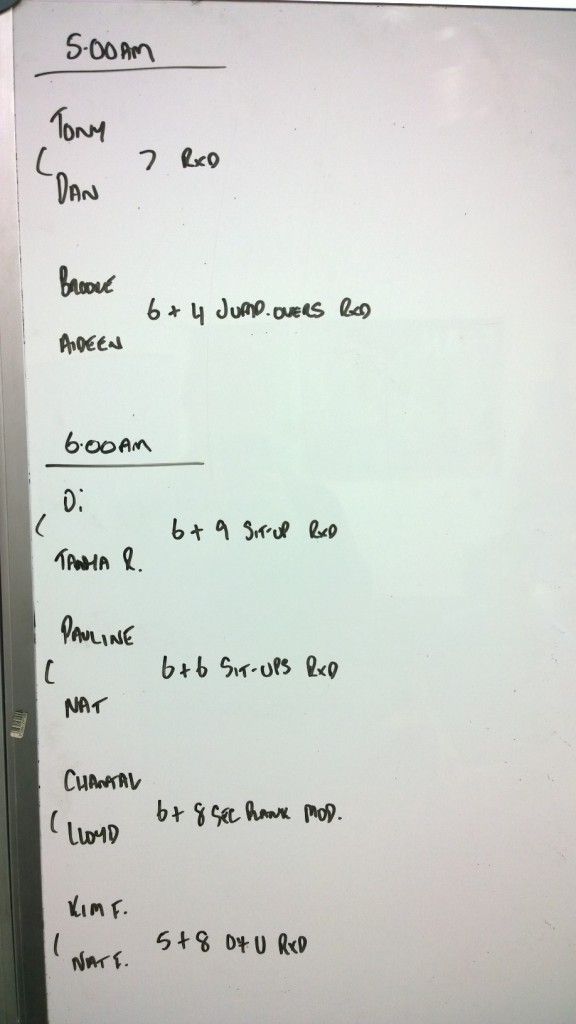 5.00AM
TONY
7 RXD
DAN
BROOKE
6 + 4 JUMP.OVERS RXD
AIDEEN
6.00AM
Di
6 + 9 SIT-UP RXD
TANHA R.
PAULINE
6+6 SIT-UPS RXD
NAT
CHANTAL
6+ 8 SEC PLANK MOD.
LLOYD
KIM F.
5+8 D+U RXD
NAT F.